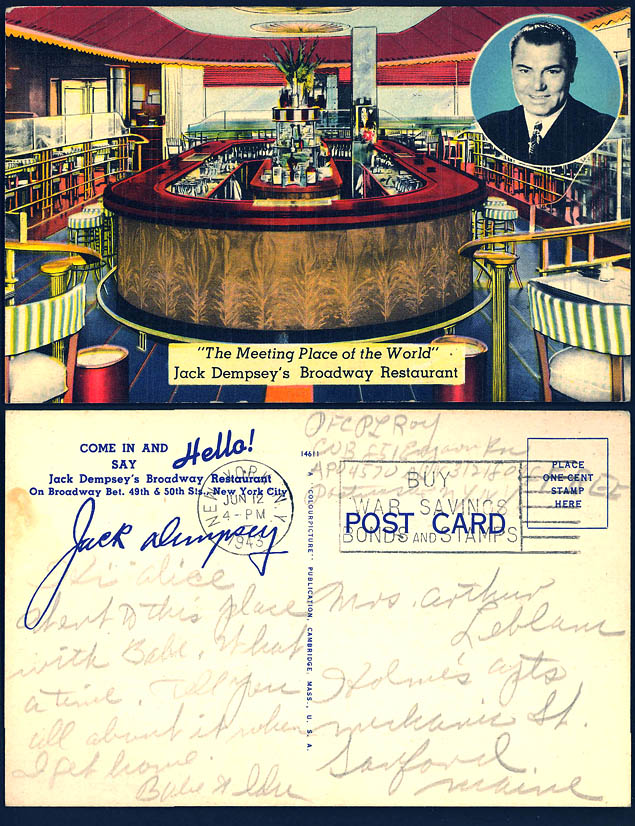 "The Meeting Place of the World"
Jack Dempsey's Broadway Restaurant
COME IN AND
SAY Hello!
Jack Dempsey's Broadway Restaurant
On Broadway Bet. 49th & 50th Sts., New York City
Jack Dempsey
NEW YORK, N.Y.
JUN 12
4-PM
1943
14611
A "COLOURPICTURE" PUBLICATION, CAMBRIDGE, MASS., U. S. A.
PFC P L Roy
APO
BUY
WAR SAVINGS
BONDS AND STAMPS
POST CARD
FREE
PLACE
ONE CENT
STAMP
HERE
Hi alice
Went to this place
with Babe. What
a time. Tell you
all about it when
I get home.
Babe &
Mrs. arthur
Leblanc
Holme's apts
mechanic St.
Sanford
maine